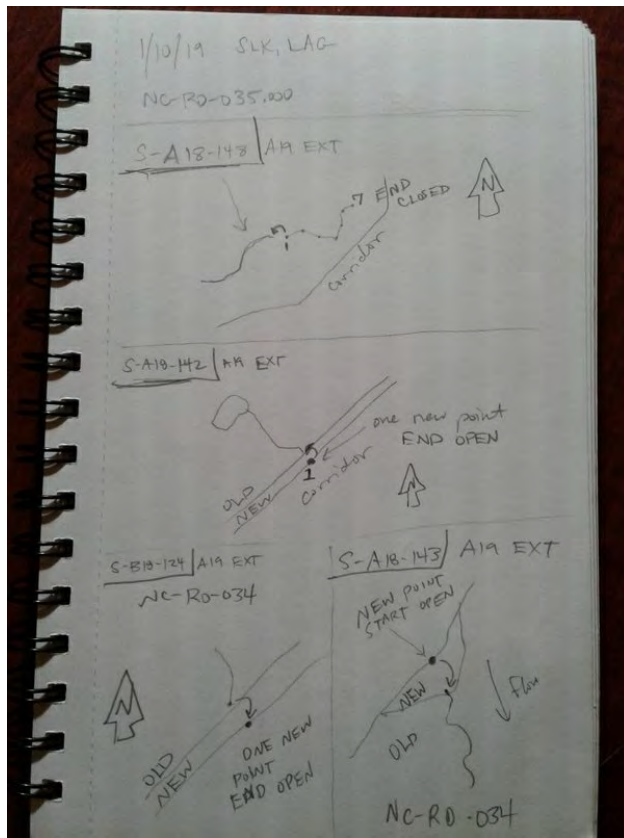 1/10/19 SLK, LAG
NC-RO-035.000
S-A18-148 A19 EXT
N
7 END
CLOSED
1
corridor
S-A18-142 A19 EXT
one new point
END OPEN
1
OLD
NEW
corridor
N
S-B18-124 A19 EXT
NC-RO-034
N
OLD
NEW
ONE NEW
POINT
END OPEN
S-A18-143 A19 EXT
NEW POINT
START OPEN
NEW
Flow
OLD
NC-RD-034